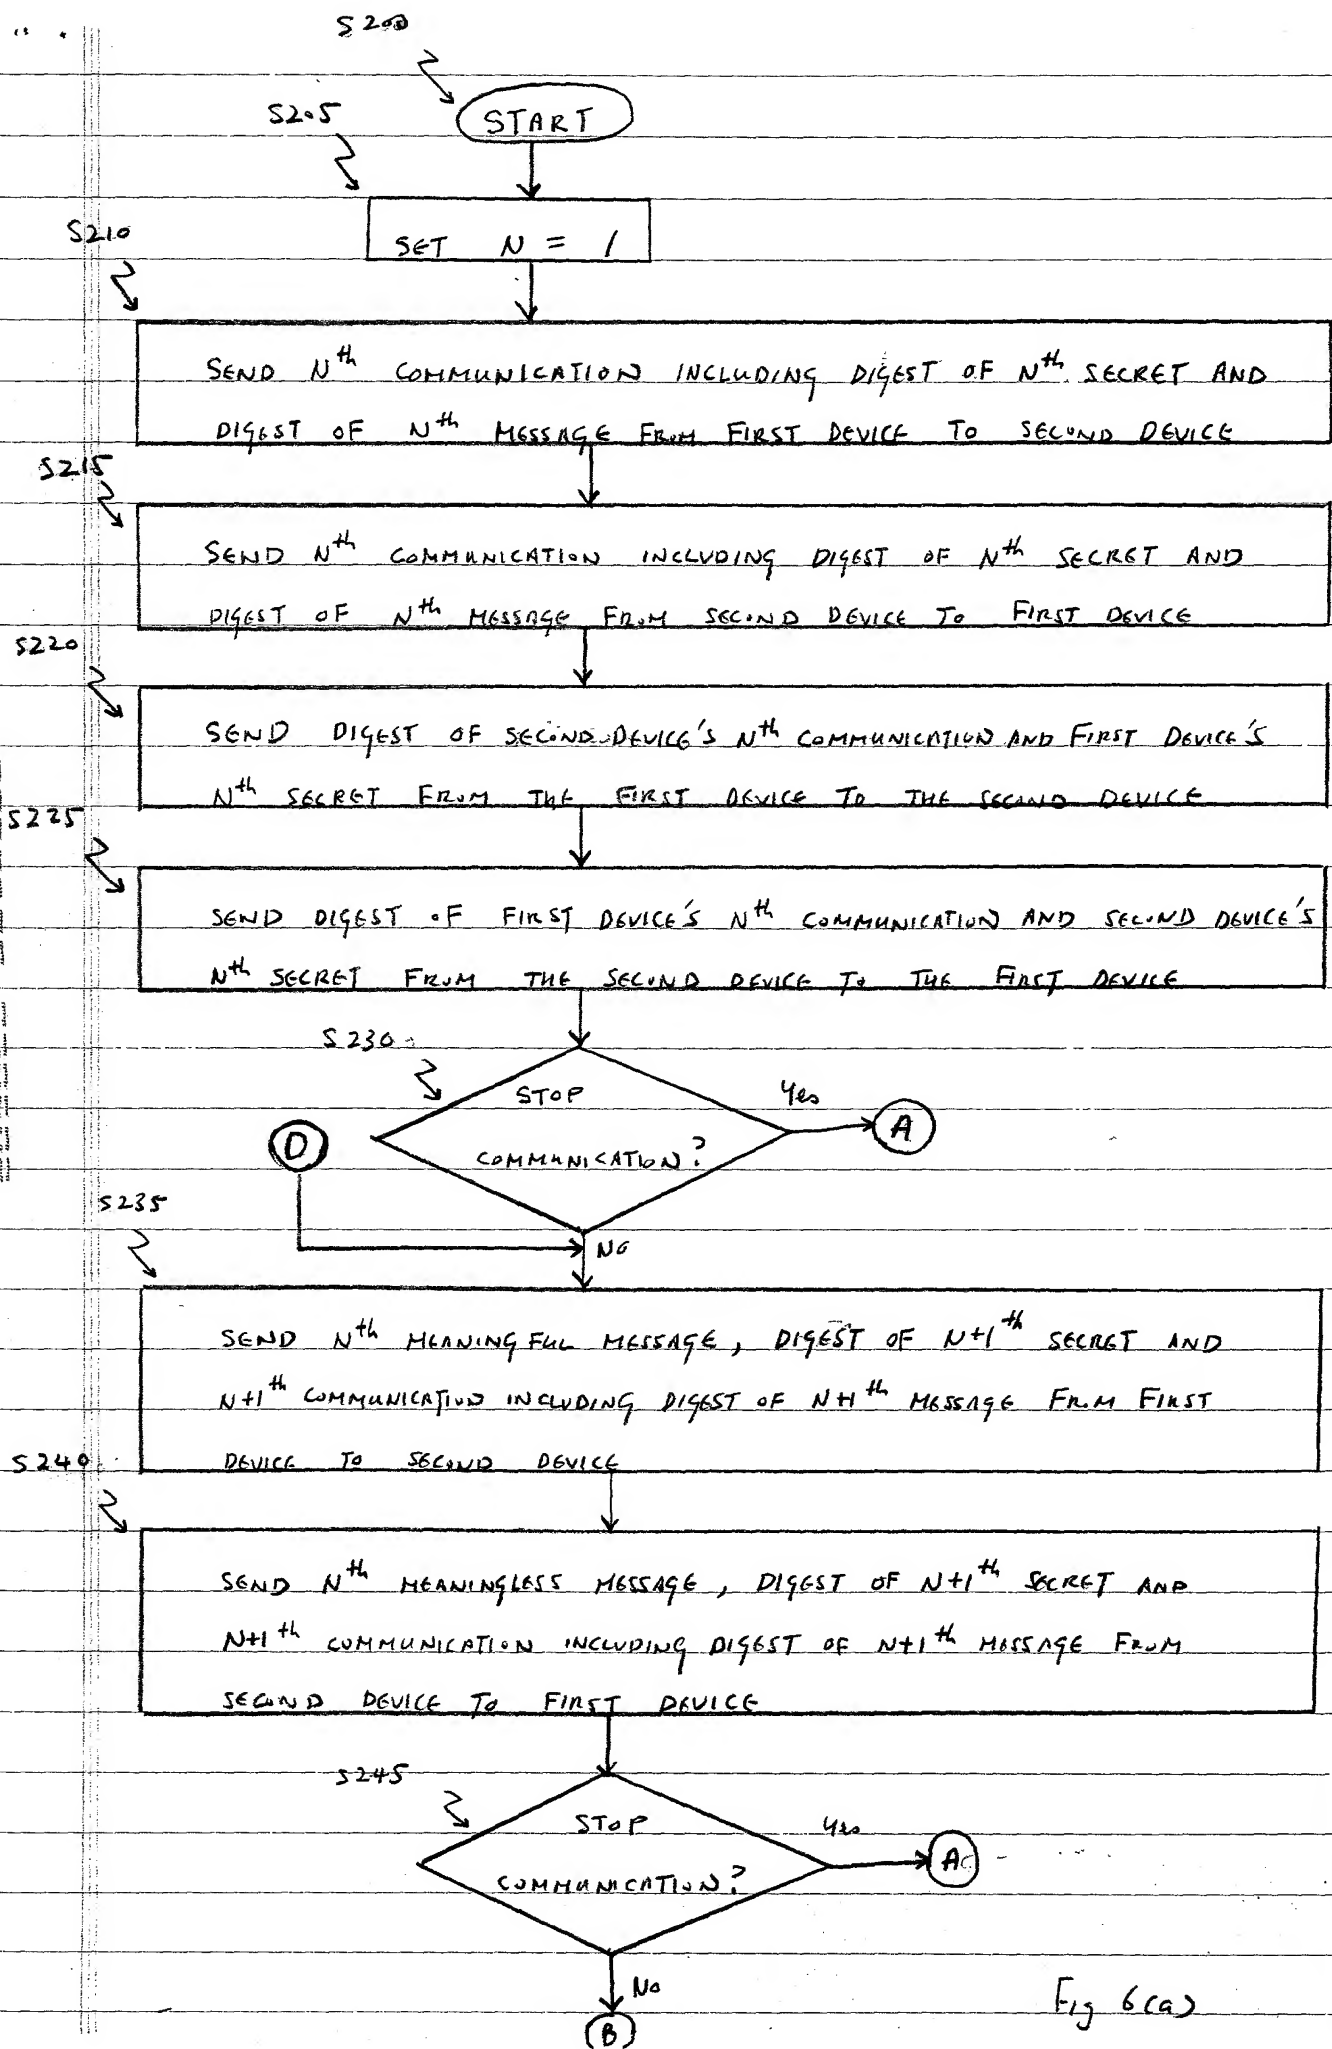 S200
START
S205
SET N = 1
S210
SEND Nth COMMUNICATION INCLUDING DIGEST OF Nth SECRET AND
DIGEST OF Nth MESSAGE FROM FIRST DEVICE TO SECOND DEVICE
S215
SEND Nth COMMUNICATION INCLUDING DIGEST OF Nth SECRET AND
DIGEST OF Nth MESSAGE FROM SECOND DEVICE TO FIRST DEVICE
S220
SEND DIGEST OF SECOND DEVICE'S Nth COMMUNICATION AND FIRST DEVICE'S
Nth SECRET FROM THE FIRST DEVICE TO THE SECOND DEVICE
S225
SEND DIGEST OF FIRST DEVICE'S Nth COMMUNICATION AND SECOND DEVICE'S
Nth SECRET FROM THE SECOND DEVICE TO THE FIRST DEVICE
S230
STOP
COMMUNICATION?
Yes
A
D
No
S235
SEND Nth MEANINGFUL MESSAGE, DIGEST OF N+1th SECRET AND
N+1th COMMUNICATION INCLUDING DIGEST OF N+1th MESSAGE FROM FIRST
DEVICE TO SECOND DEVICE
S240
SEND Nth MEANINGLESS MESSAGE, DIGEST OF N+1th SECRET AND
N+1th COMMUNICATION INCLUDING DIGEST OF N+1th MESSAGE FROM
SECOND DEVICE TO FIRST DEVICE
S245
STOP
COMMUNICATION?
Yes
A
No
B
Fig 6(a)